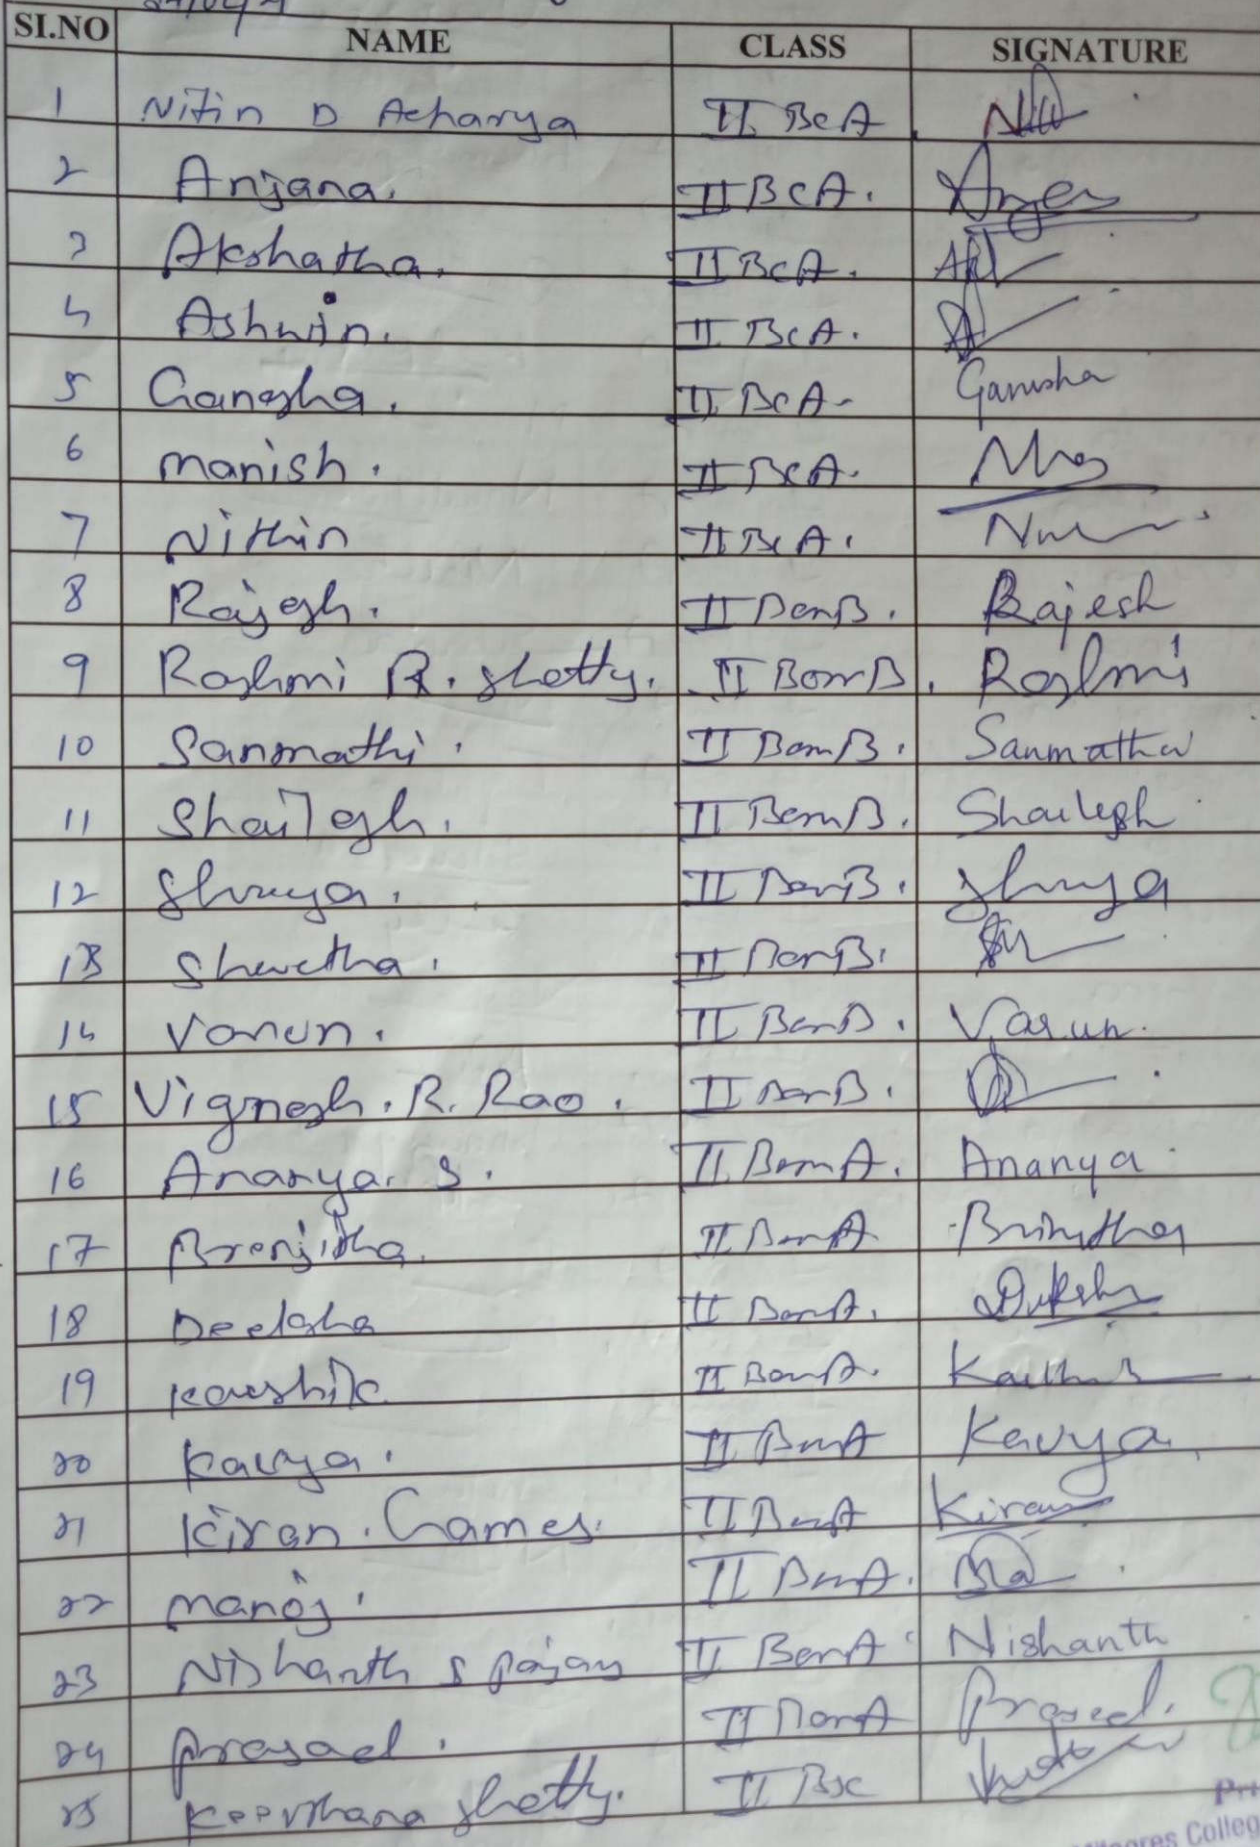 SI.NO NAME CLASS SIGNATURE
1 Nitin D Acharya II BCA
2 Anjana. II BCA.
3 Akshatha. II BCA.
4 Ashwin. II BCA.
5 Ganesha. II BCA. Ganesha
6 Manish. II BCA.
7 Nithin II BCA.
8 Rajesh. II Bom B. Rajesh
9 Rashmi R. Shetty. II Bom B. Rashmi
10 Sanmathi. II Bom B. Sanmathi
11 Shailesh. II Bom B. Shailesh
12 Shreya. II Bom B. Shreya
13 Shwetha. II Bom B.
14 Varun. II Bom B. Varun.
15 Vignesh. R. Rao. II Bom B.
16 Ananya. S. II Bom A. Ananya
17 II Bom A
18 Deeksha II Bom A. Deeksha
19 Koushik II Bom A.
20 Kavya. II Bom A Kavya.
21 Kiran. II Bom A Kiran
22 Manoj. II Bom A.
23 Nishanth S II Bom A Nishanth
24 Prasad. II Bom A Prasad.
25 Keerthana Shetty. II Bsc